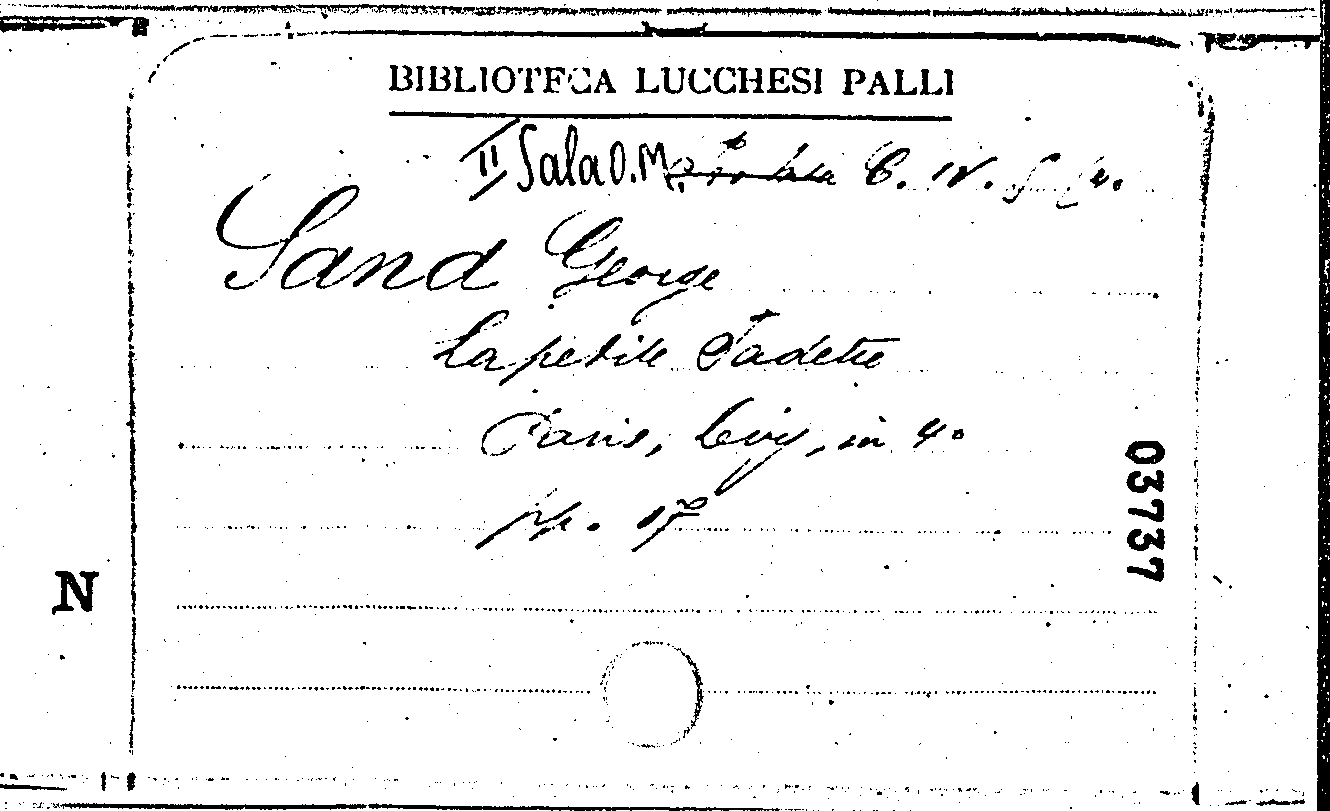 BIBLIOTECA LUCCHESI PALLI
II Sala O. M. C. IV.
Sand George
La petite Fadette
Paris, Levy, in 4°
pp. 17
03737
N